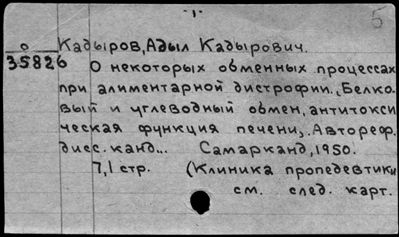 - 1 -
5
о Кадыров, Адыл Кадырович.
35826
О некоторых обменных процессах
при алиментарной дистрофии. (Белко-
вый и углеводный обмен, антитокси-
ческая функция печени). Автореф.
дисс. канд... Самарканд, 1950.
7,1 стр. (Клиника пропедевтики
см. след. карт.